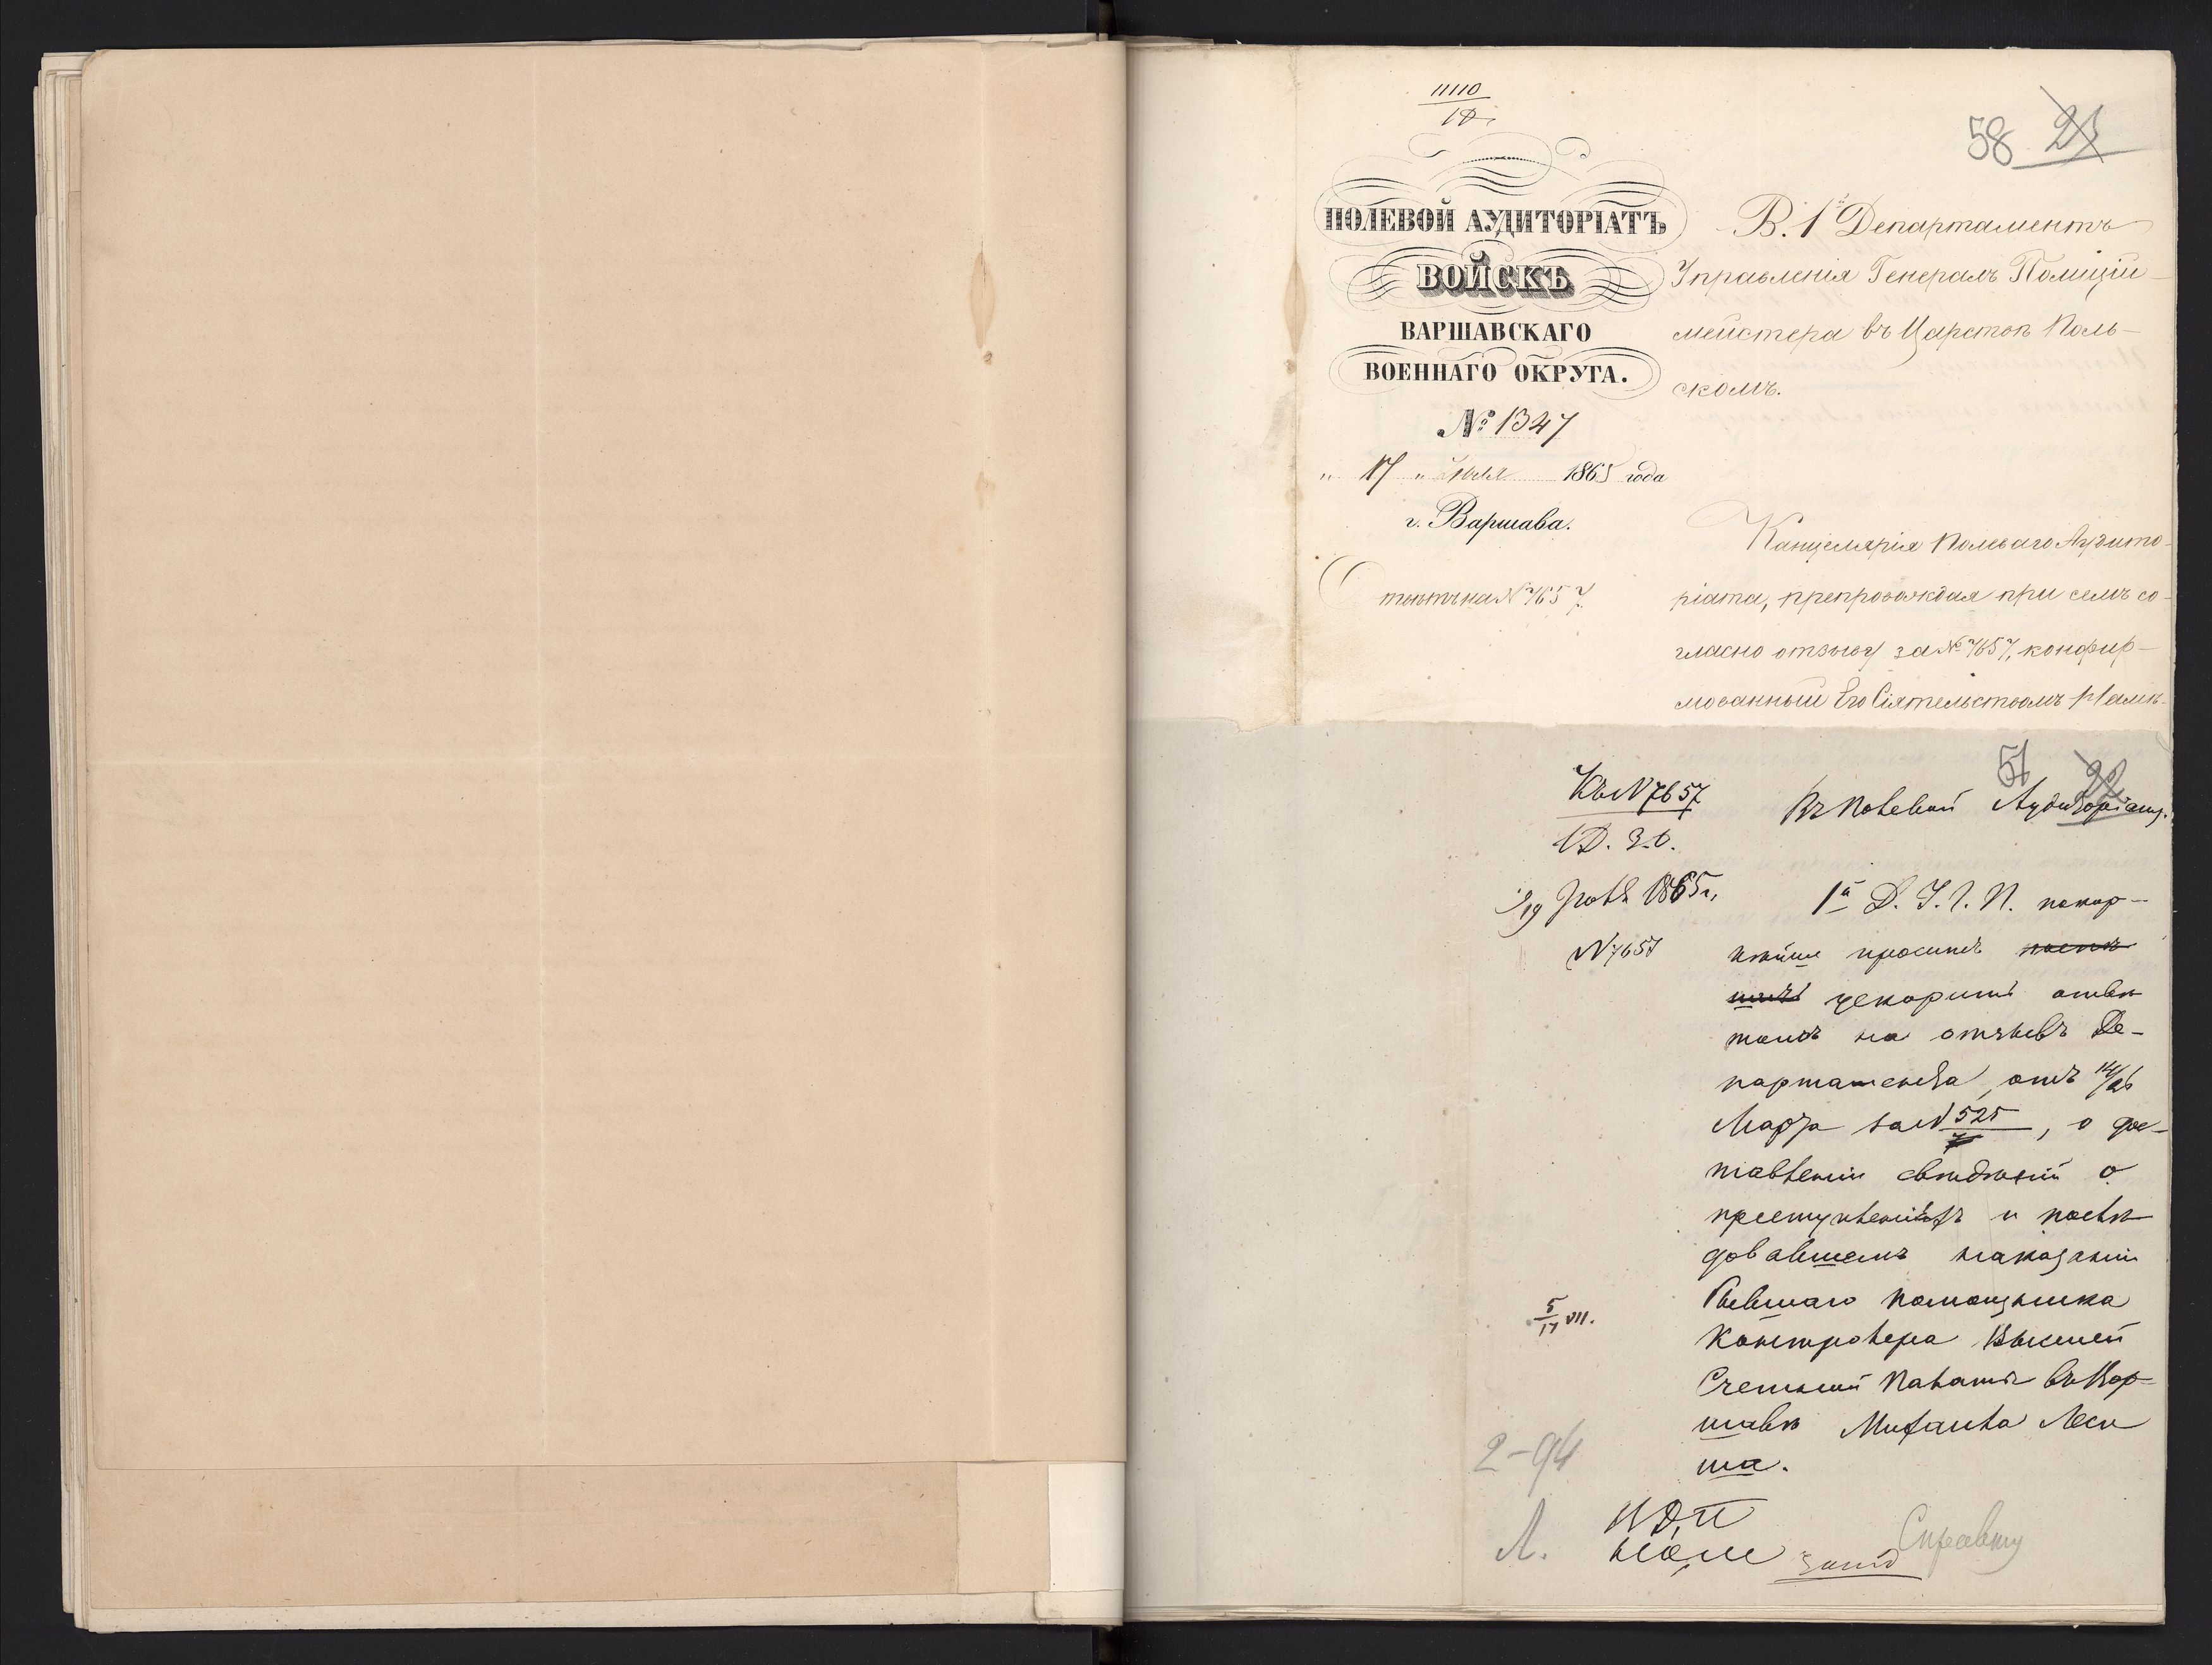 11110
1 Д.
58 21
ПОЛЕВОЙ АУДИТОРІАТЪ
ВОЙСКЪ
ВАРШАВСКАГО
ВОЕННАГО ОКРУГА.
№ 1347
„ 17 „ Іюля 1865 года
г. Варшава.
Отвѣтъ на № 7657
В. 1й Департаментъ
Управленія Генералъ Полиціи-
мейстера въ Царствѣ Поль-
скомъ.
Канцелярія Полеваго Аудито-
ріата, препровождая при семъ со-
гласно отзыву за № 7657, конфир-
мованный Его Сіятельствомъ Намѣ-
51 22
Къ № 7657
1 Д. 3.0.
Въ Полевой Аудиторіатъ.
/19 Іюля 1865 г.
№ 7657
1й Д. У. Г. П. покор-
нѣйше проситъ
ускорить отвѣ
томъ на отзывъ Де-
партамента, отъ 14/26
Марта за № 525, о дос-
тавленіи свѣдѣній о
преступленіяхъ и послѣ
довавшемъ наказаніи
бывшаго помощника
Контролера Высшей
Счетной Палаты въ Вар-
шавѣ Михаила Леси
ша.
5/17 VII.
2-94
Л.
Справку